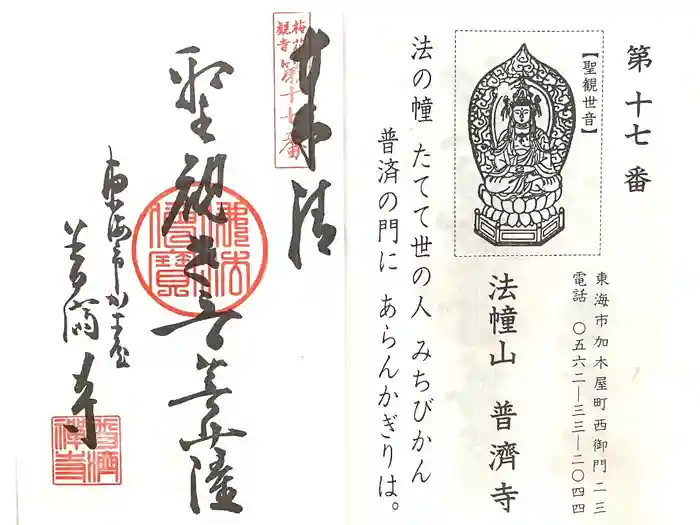 第十七番
【聖観世音】
東海市加木屋町西御門二三
電話 〇五六二―三三―二〇四四
法幢山 普濟寺
法の幢 たてて世の人 みちびかん
普済の門に あらんかぎりは。
第十七番
奉拝
聖観世音菩薩
佛法僧寳
東海市加木屋
普濟寺